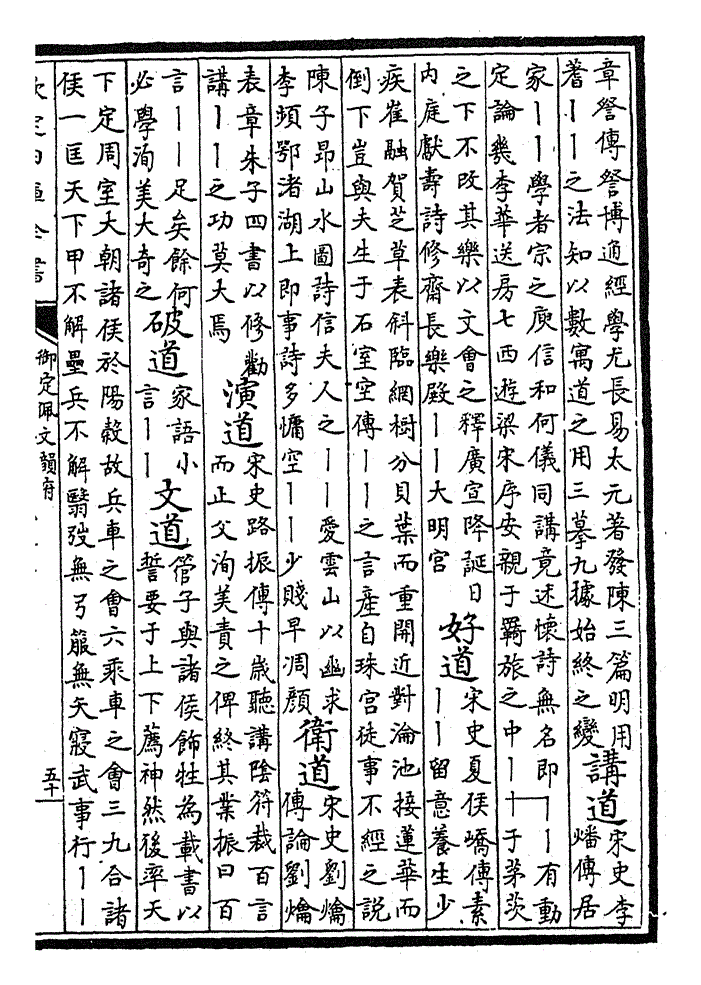 章詧傳詧博通經學尤長易太元著發陳三篇明用
蓍丨丨之法知以數寓道之用三摹九據始終之變
講道
宋史李
燔傳居
家丨丨學者宗之庾信和何儀同講竟述懷詩無名即丨丨有動
定論幾李華送房七西遊梁宋序安親于羇旅之中丨丨于茅茨
之下不改其樂以文會之釋廣宣降誕日
內庭獻壽詩修齋長樂殿丨丨大明宮
好道
宋史夏侯嶠傳素
丨丨留意養生少
疾崔融賀芝草表斜臨網樹分貝葉而重開近對淪池接蓮華而
倒下豈與夫生于石室空傳丨丨之言產自珠宮徒事不經之說
陳子昂山水圖詩信夫人之丨丨愛雲山以幽求
李頻鄂渚湖上即事詩多慵空丨丨少賤早凋顏
衛道
宋史劉爚
傳論劉爚
表章朱子四書以修勸
講丨丨之功莫大焉
演道
宋史路振傳十歲聽講陰符裁百言
而正父洵美責之俾終其業振曰百
言丨丨足矣餘何
必學洵美大奇之
破道
家語小
言丨丨
文道
管子與諸侯飾牲為載書以
誓要于上下薦神然後率天
下定周室大朝諸侯於陽穀故兵車之會六乘車之會三九合諸
侯一匡天下甲不解壘兵不解翳弢無弓箙無矢寢武事行丨丨
欽定四庫全書
御定佩文韻府
五十